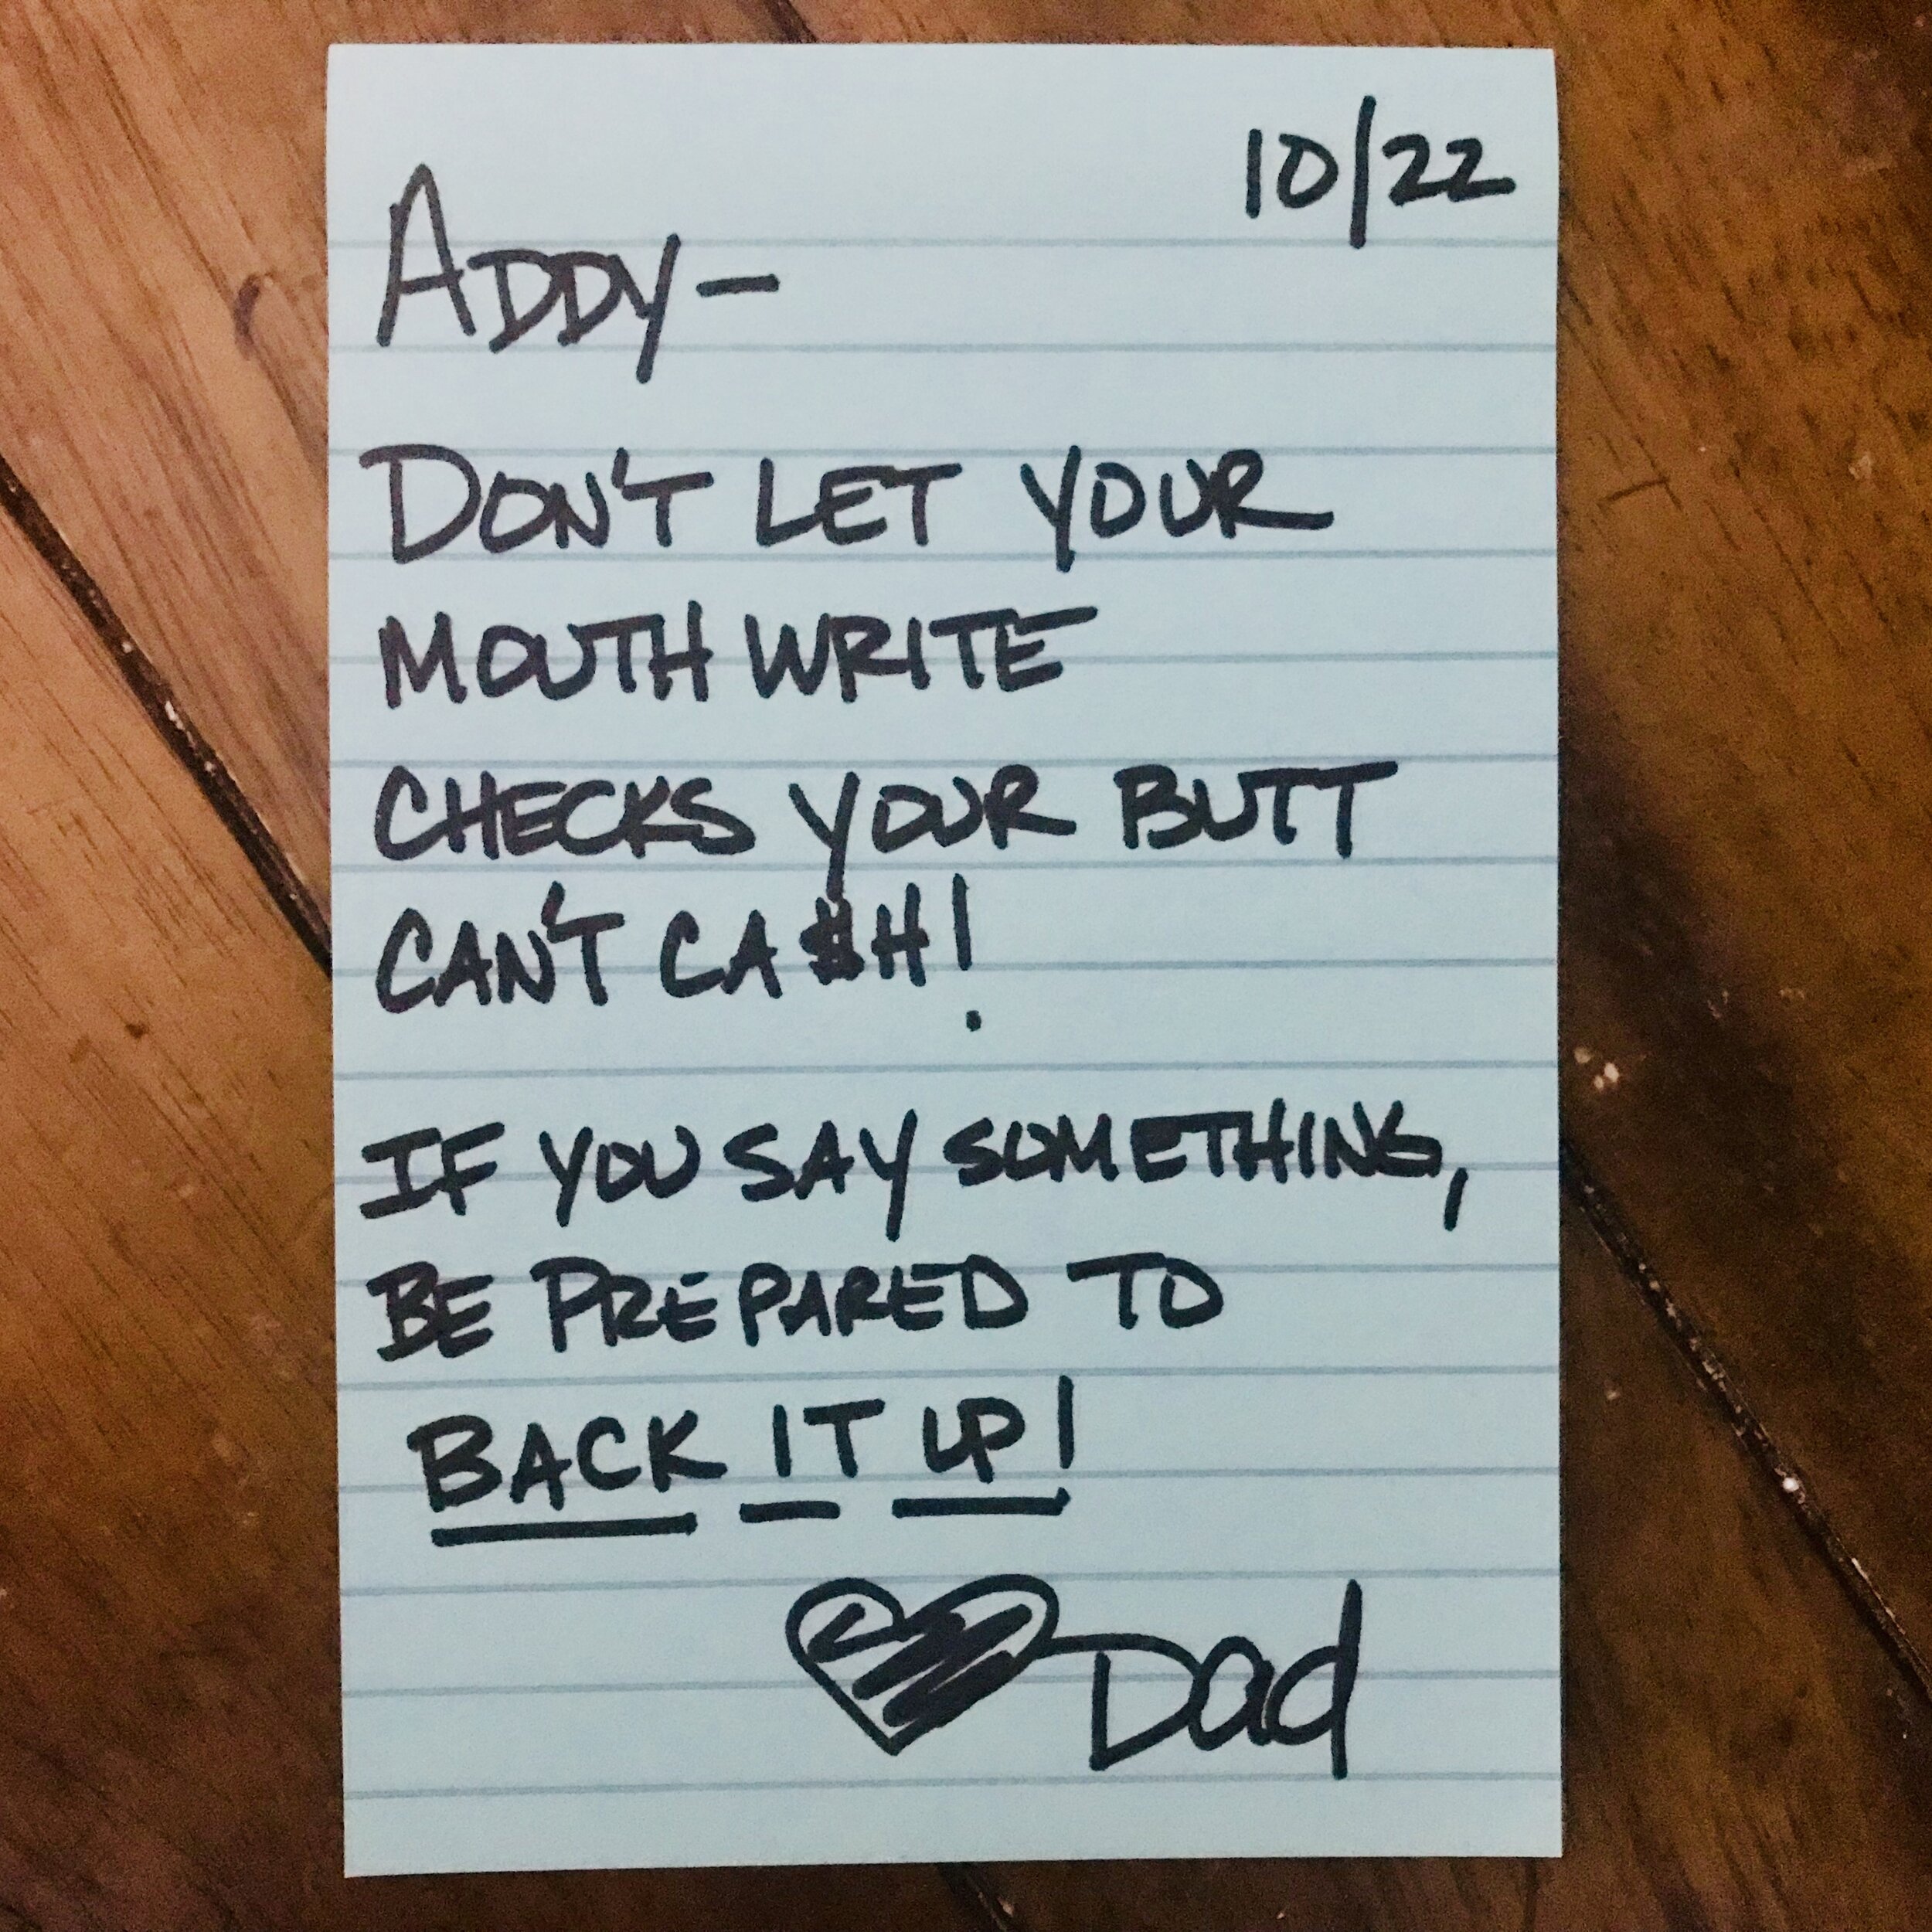 10/22
ADDY-
DON'T LET YOUR
MOUTH WRITE
CHECKS YOUR BUTT
CAN'T CA$H!
IF YOU SAY SOMETHING,
BE PREPARED TO
BACK IT UP!
Dad